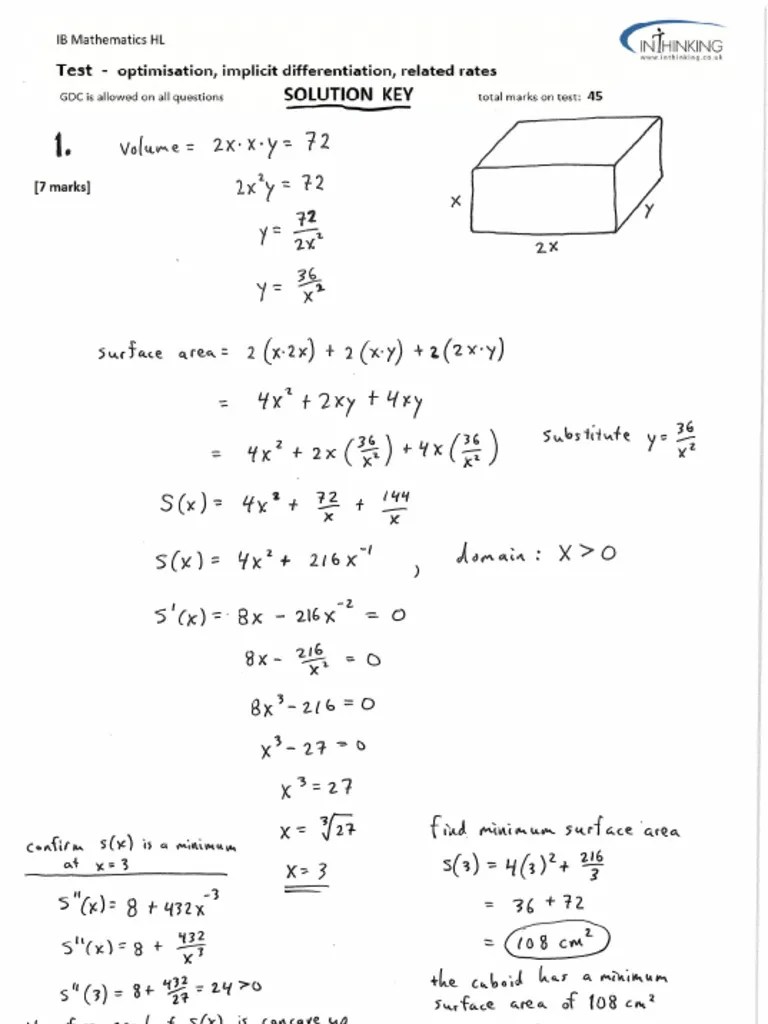 IB Mathematics HL
INTHINKING
www.inthinking.co.uk
Test - optimisation, implicit differentiation, related rates
GDC is allowed on all questions SOLUTION KEY total marks on test: 45
1. Volume = 2x·x·y = 72
[7 marks] 2x²y = 72
y = 72/2x²
y = 36/x²
x
y
2x
surface area = 2(x·2x) + 2(x·y) + 2(2x·y)
= 4x² + 2xy + 4xy
= 4x² + 2x(36/x²) + 4x(36/x²) substitute y = 36/x²
S(x) = 4x² + 72/x + 144/x
S(x) = 4x² + 216x⁻¹ , domain: x > 0
S'(x) = 8x - 216x⁻² = 0
8x - 216/x² = 0
8x³ - 216 = 0
x³ - 27 = 0
x³ = 27
x = ∛27
x = 3
confirm S(x) is a minimum
at x = 3
S"(x) = 8 + 432x⁻³
S"(x) = 8 + 432/x³
S"(3) = 8 + 432/27 = 24 > 0
S(x) is concave up
find minimum surface area
S(3) = 4(3)² + 216/3
= 36 + 72
= 108 cm²
the cuboid has a minimum
surface area of 108 cm²